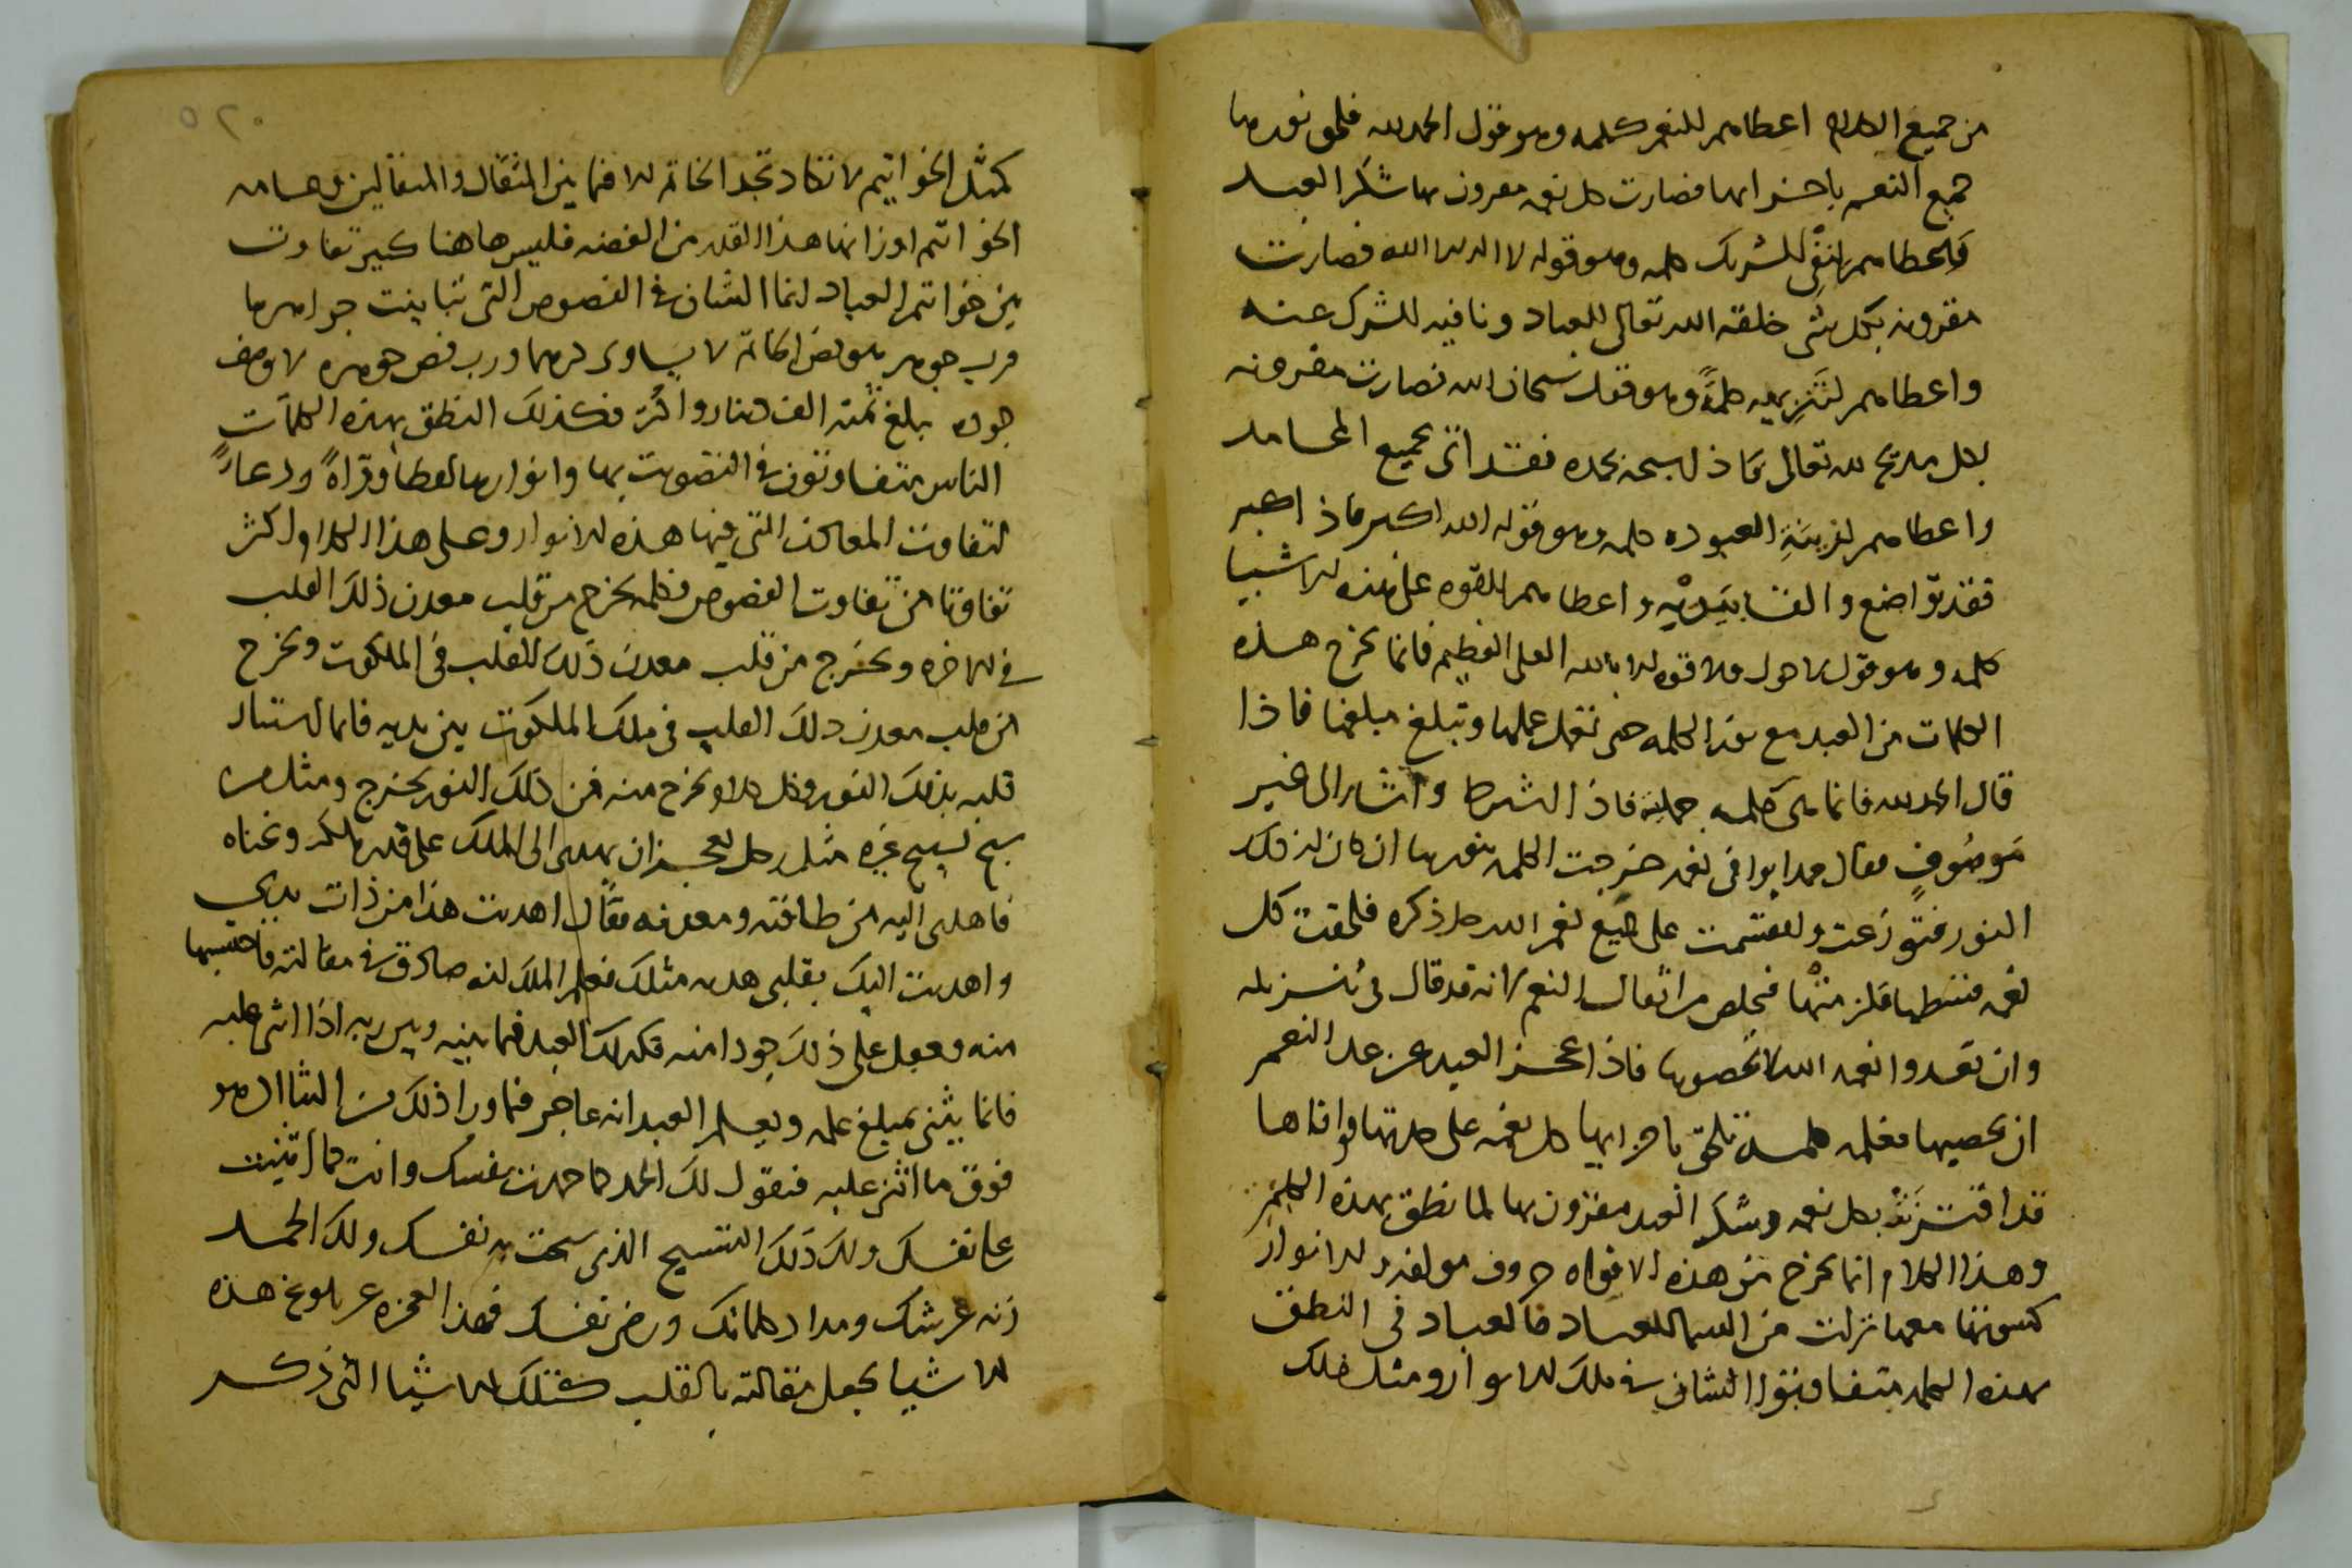 من جميع الكلام اعطاهم للنعم كلمه وهو قول الحمد لله فلحق نورها
جميع النعم باجزايها فصارت كل نعمه مقرون بها شكر العبد
فاعطاهم لنفي الشرك كلمه وهو قوله لا اله الا الله فصارت
مقرونه بكل شى خلقه الله تعالى للعباد ونافيه للشرك عنه
واعطاهم لتنزيهه كلمةً وهو قول سبحان الله فصارت مقرونه
بكل مديح لله تعالى فاذا سبحه بحمده فقد اتى بجميع المحامد
واعطاهم لزينة العبوده كلمه وهو قوله الله اكبر فاذا كبر
فقد تواضع والقا بيديه واعطاهم للقوه على هذه الاشيا
كلمه وهو قول لا حول ولا قوه الا بالله العلى العظيم فانما تخرج هذه
الكلمات من العبد مع نور الكلمه حتى تعمل عملها وتبلغ مبلغها فاذا
قال الحمد لله فانما هى كلمه جمليه فاذا اشرط واشار الى غير
موصوفٍ فقال حمدا يوافى نعمه خرجت الكلمه بنورها ان كان لذلك
النور فتوزعت وانقسمت على جميع نعم الله جل ذكره فلحقت كل
نعمه فتخلص من اثقال النعم لانه قد قال فى تنزيله
وان تعدوا نعمه الله لا تحصوها فاذا عجز العبد عن عد النعم
ان يحصيها فعلمه كلمه تلحق باجزايها كل نعمه على حدتها فوافاها
قد اقترنت بكل نعمه وشكر العبد مقرون بها لما نطق بهذه الكلم
وهذا الكلام انما يخرج من هذه الافواه حروف مولفه والانوار
كسوتها معها نزلت من السما للعباد فالعباد فى النطق
بهذه الكلمه متفاوتوا الشان فى تلك الانوار ومثل ذلك
٥٢٠
كمثل الخواتيم لا تكاد تجد الخاتم الا فيما بين المثقال والمثقالين وهامه
الخواتم اوزانها هذا القدر من الفضه فليس هاهنا كبير تفاوت
بين خواتم العباد انما الشان فى الفصوص التى تباينت جواهرها
فرب جوهر هو فص الخاتم لا يساوى درهما ورب فص جوهره لا يوصف
جوده يبلغ ثمنه الف دينار واكثر فكذلك النطق بهذه الكلمات
الناس متفاوتون فى التصويت بها وانوارها لفظا وقراةً ودعاً
لتفاوت المعادن التى فيها هذه الانوار وعلى هذا الكلام اكثر
تفاوتا من تفاوت الفصوص فكلمه تخرج من قلب معدن ذلك القلب
فى الاخره وتخرج من قلب معدن ذلك القلب فى الملكوت وتخرج
من قلب معدن ذلك القلب فى ملك الملكوت بين يديه فانما استنار
قلبه بذلك النور وكل كلام يخرج منه فمن ذلك النور يخرج ومثل من
سبح تسبيح غيره مثل رجل يعجز ان يهدى الى الملك على قدر ملكه وغناه
فاهدى اليه من طاقته ومعرفه فقال اهديت هذا من ذات يدي
واهديت اليك بقلبى هديه مثلك فعلم الملك انه صادق فى مقالته فاحتسبها
منه وقبل على ذلك جودا منه فكذلك العبد فيما بينه وبين ربه اذا اثنى عليه
فانما يثنى بمبلغ علمه ويعلم العبد انه عاجز فيما ورا ذلك من الثنا الذى هو
فوق ما اثنى عليه فيقول لك الحمد كما حمدت نفسك وانت كما اثنيت
على نفسك ولك ذلك التسبيح الذى سبحت به نفسك ولك الحمد
زنه عرشك ومداد كلماتك ورضى نفسك فهذا العجزه عن بلوغ هذه
الاشيا يجعل مقالته بالقلب كتلك الاشيا التى ذكر